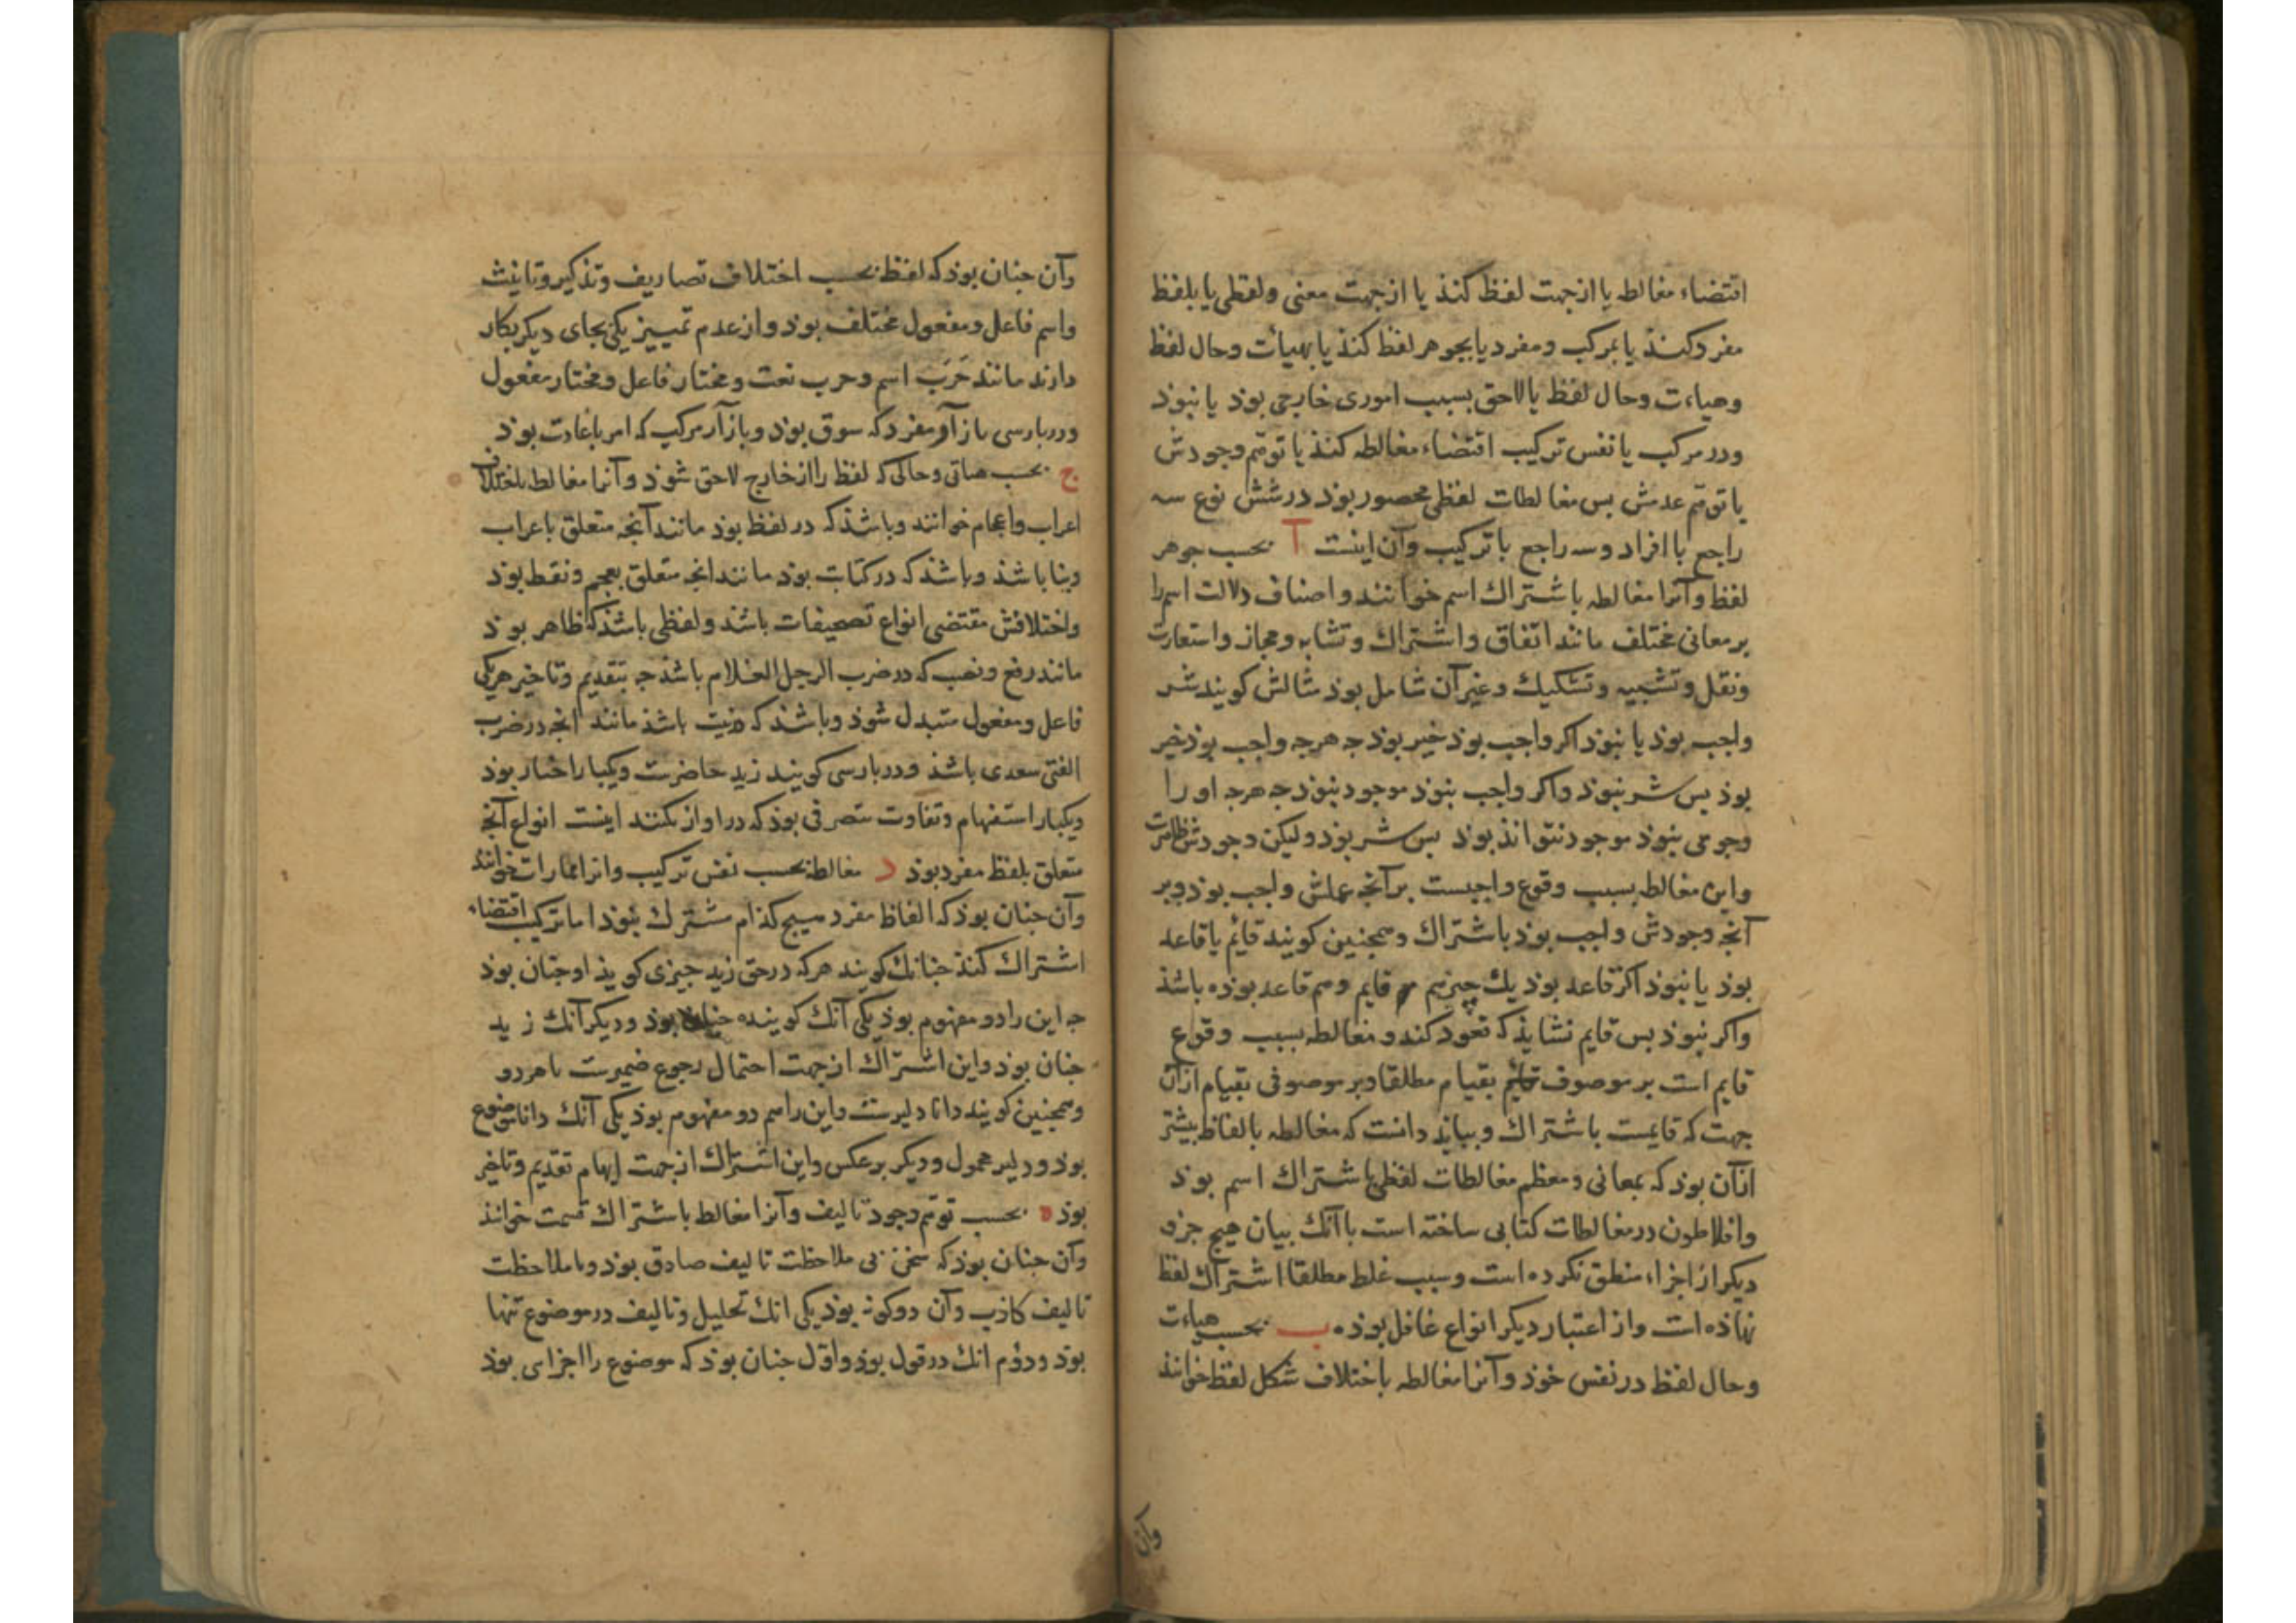 اقتضاء مغالطه یا از جهت لفظ کنذ یا از جهت معنی ولفظی یا بلفظ
مفرد کنذ یا بمرکب ومفرد یا بجوهر لفظ کنذ یا بهیأت وحال لفظ
وهیاءت وحال لفظ یا لاحق بسبب اموری خارجی بوذ یا نبوذ
ودر مرکب یا نفس ترکیب اقتضاء مغالطه کنذ یا توهّم وجودش
یا توهّم عدمش بس مغالطات لفظی محصور بوذ در شش نوع سه
راجع با افراد وسه راجع با ترکیب وآن اینست آ بحسب جوهر
لفظ وآنرا مغالطه باشتراك اسم خوانند واصناف دلالت اسم را
بر معانی مختلف مانند اتفاق واشتراك وتشابه ومجاز واستعارت
ونقل وتشبیه وتشکیك وغیر آن شامل بوذ مثالش کویند شر
واجب بوذ یا نبوذ اکر واجب بوذ خیر بوذ جه هرجه واجب بوذ خیر
بوذ بس شر نبوذ واکر واجب نبوذ موجود نبوذ جه هرجه او را
وجوبی نبوذ موجود نتوانذ بوذ بس شر بوذ ولیکن وجودش ظاهرست
واین مغالطه بسبب وقوع واجبست بر آنجه عملش واجب بوذ وبر
آنجه وجودش واجب بوذ باشتراك وهمجنین کویند قائم یا قاعد
بوذ یا نبوذ اکر قاعد بوذ یك چیز هم قایم وهم قاعد بوذه باشذ
واکر نبوذ بس قایم نشایذ که قعود کند ومغالطه بسبب وقوع
قایم است بر موصوف بقیام مطلقا وبر موصوفی بقیام از آن
جهت که قایمست باشتراك وببایذ دانست که مغالطه بالفاظ بیشتر
از آن بوذ که بمعانی ومعظم مغالطات لفظی باشتراك اسم بوذ
وافلاطون در مغالطات کتابی ساخته است با آنك بیان هیچ جزو
دیکر از اجزاء منطق نکرده است وسبب غلط مطلقا اشتراك لفظ
نهاذه است واز اعتبار دیکر انواع غافل بوذه ب بحسب هیاءت
وحال لفظ در نفس خوذ وآنرا مغالطه باختلاف شکل لفظ خوانند
وآن
وآن جنان بوذ که لفظ بحسب اختلاف تصاریف وتذکیر وتانیث
واسم فاعل ومفعول مختلف بوذ واز عدم تمییز یکی بجای دیکر بکار
دارند مانند حَرَب اسم وحرب نعت ومختار فاعل ومختار مفعول
ودر بارسی بازار مفرد که سوق بوذ وباز آر مرکب که امر باعادت بوذ
ج بحسب هیاتی وحالی که لفظ را از خارج لاحق شوذ وآنرا مغالطه باختلاف
اعراب واعجام خوانند وباشذ که در لفظ بوذ مانند آنجه متعلق باعراب
وبنا باشذ وباشذ که در کتابت بوذ مانند انجه متعلق بعجم ونقط بوذ
واختلافش مقتضی انواع تصحیفات باشد ولفظی باشذ که ظاهر بوذ
مانند رفع ونصب که در ضرب الرجل الغلام باشذ جه بتقدیم وتاخیر هریکی
فاعل ومفعول متبدل شوذ وباشذ که بنیت باشذ مانند انجه در ضرب
الفتی سعدی باشذ ودر بارسی کویند زید حاضرست ویکبار اخبار بوذ
ویکبار استفهام وتفاوت بتصرفی بوذ که در اواز بکنند اینست انواع آنجه
متعلق بلفظ مفرد بوذ د مغالطه بحسب نفس ترکیب وانرا ممارات خوانند
وآن جنان بوذ که الفاظ مفرد هیچ کذام مشترك نبوذ اما ترکیب اقتضاء
اشتراك کنذ جنانك کویند هرکه در حق زید جیزی کویذ او جنان بوذ
جه این را دو مفهوم بوذ یکی آنك کوینده جنان بوذ ودیکر آنك زید
جنان بوذ واین اشتراك از جهت احتمال رجوع ضمیرست با هر دو
وهمجنین کویند دانا دلیرست واین را هم دو مفهوم بوذ یکی آنك دانا موضوع
بوذ ودلیر محمول ودیکر برعکس واین اشتراك از جهت ایهام تقدیم وتاخیر
بوذ ه بحسب توهّم وجود تالیف وآنرا مغالطه باشتراك قسمت خوانند
وآن جنان بوذ که سخن بی ملاحظت تالیف صادق بوذ وبا ملاحظت
تالیف کاذب وآن دو کونه بوذ یکی انك تحلیل وتالیف در موضوع تنها
بوذ ودوُم انك در قول بوذ واوّل جنان بوذ که موضوع را اجزای بوذ